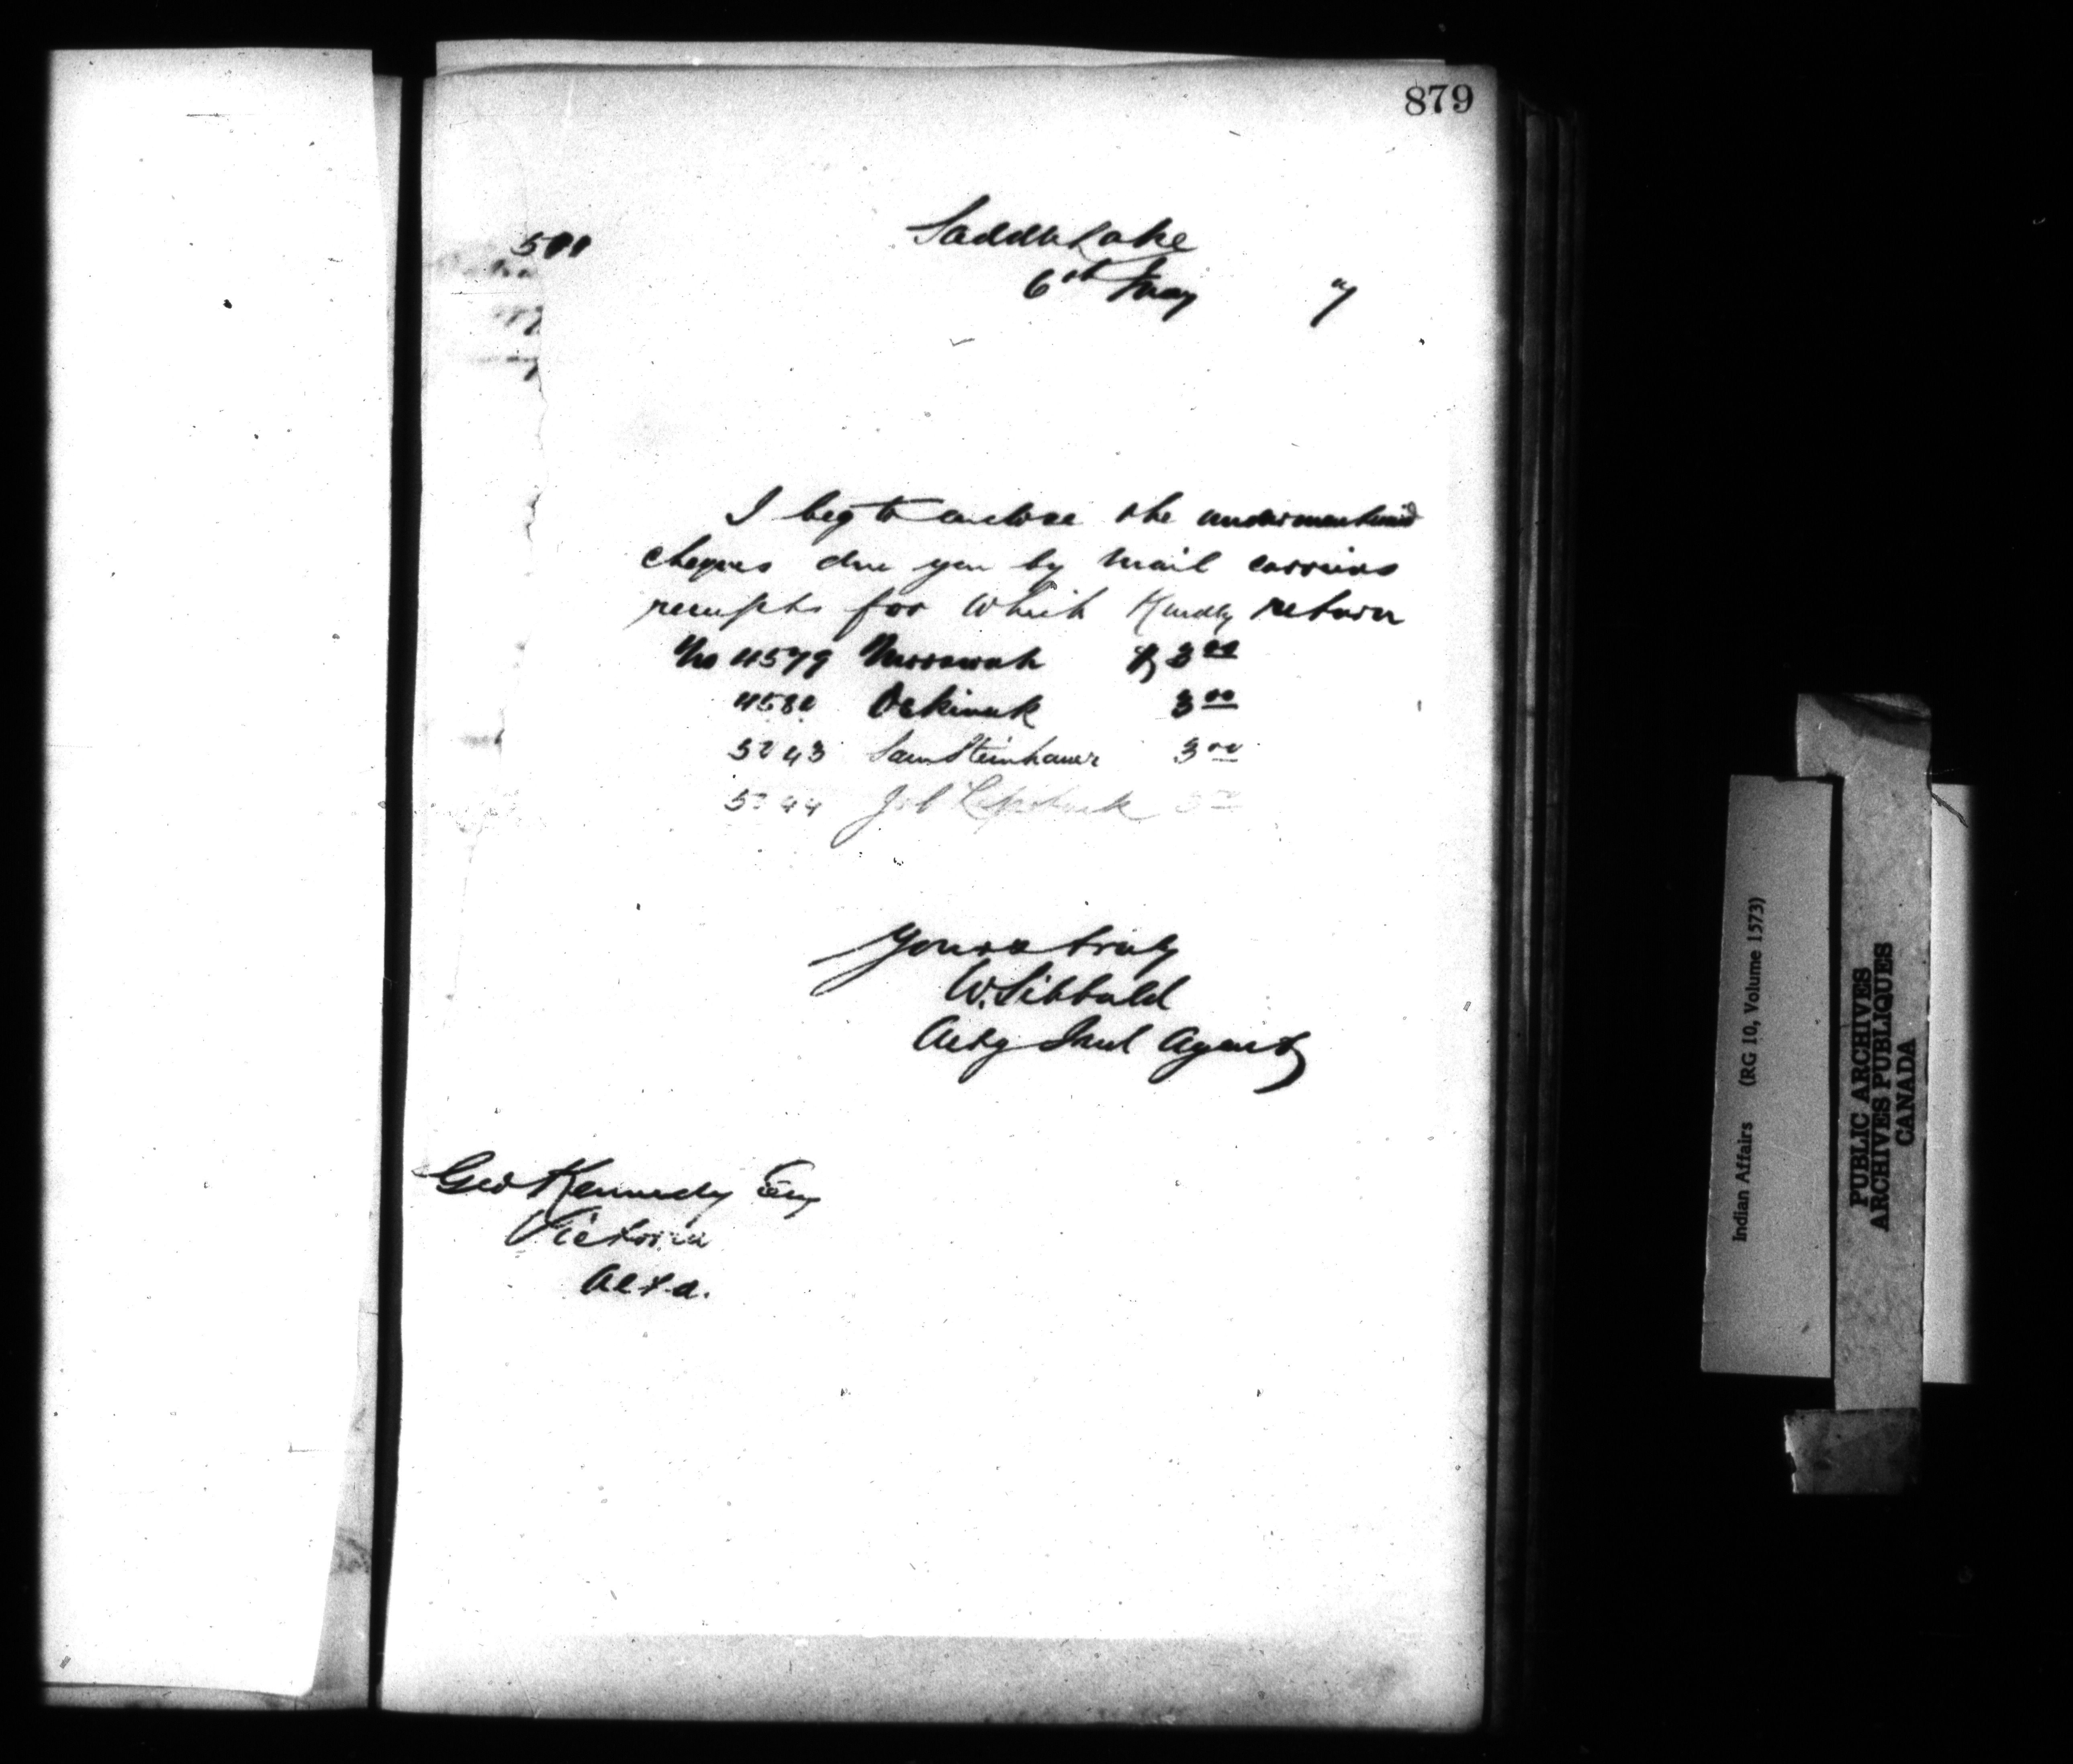 879
Saddle Lake
6th May 7
I beg to enclose the undermentioned
cheques due you by mail carriers
receipts for which Kindly return
No 4579 $3.00
4580 3.00
5243 Sam Steinhauer 3.00
5244 Job
Yours truly
W. Sibbald
Actg Ind Agent
Geo Kennedy Esq
Victoria
Alta.
Indian Affairs (RG 10, Volume 1573)
PUBLIC ARCHIVES
ARCHIVES PUBLIQUES
CANADA